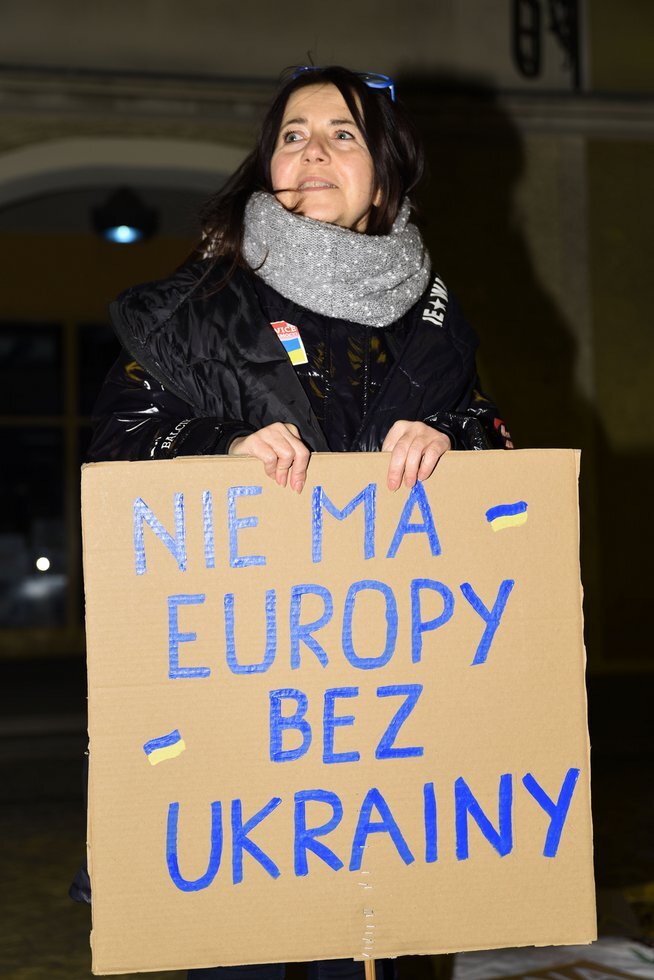 NIE MA
EUROPY
BEZ
UKRAINY